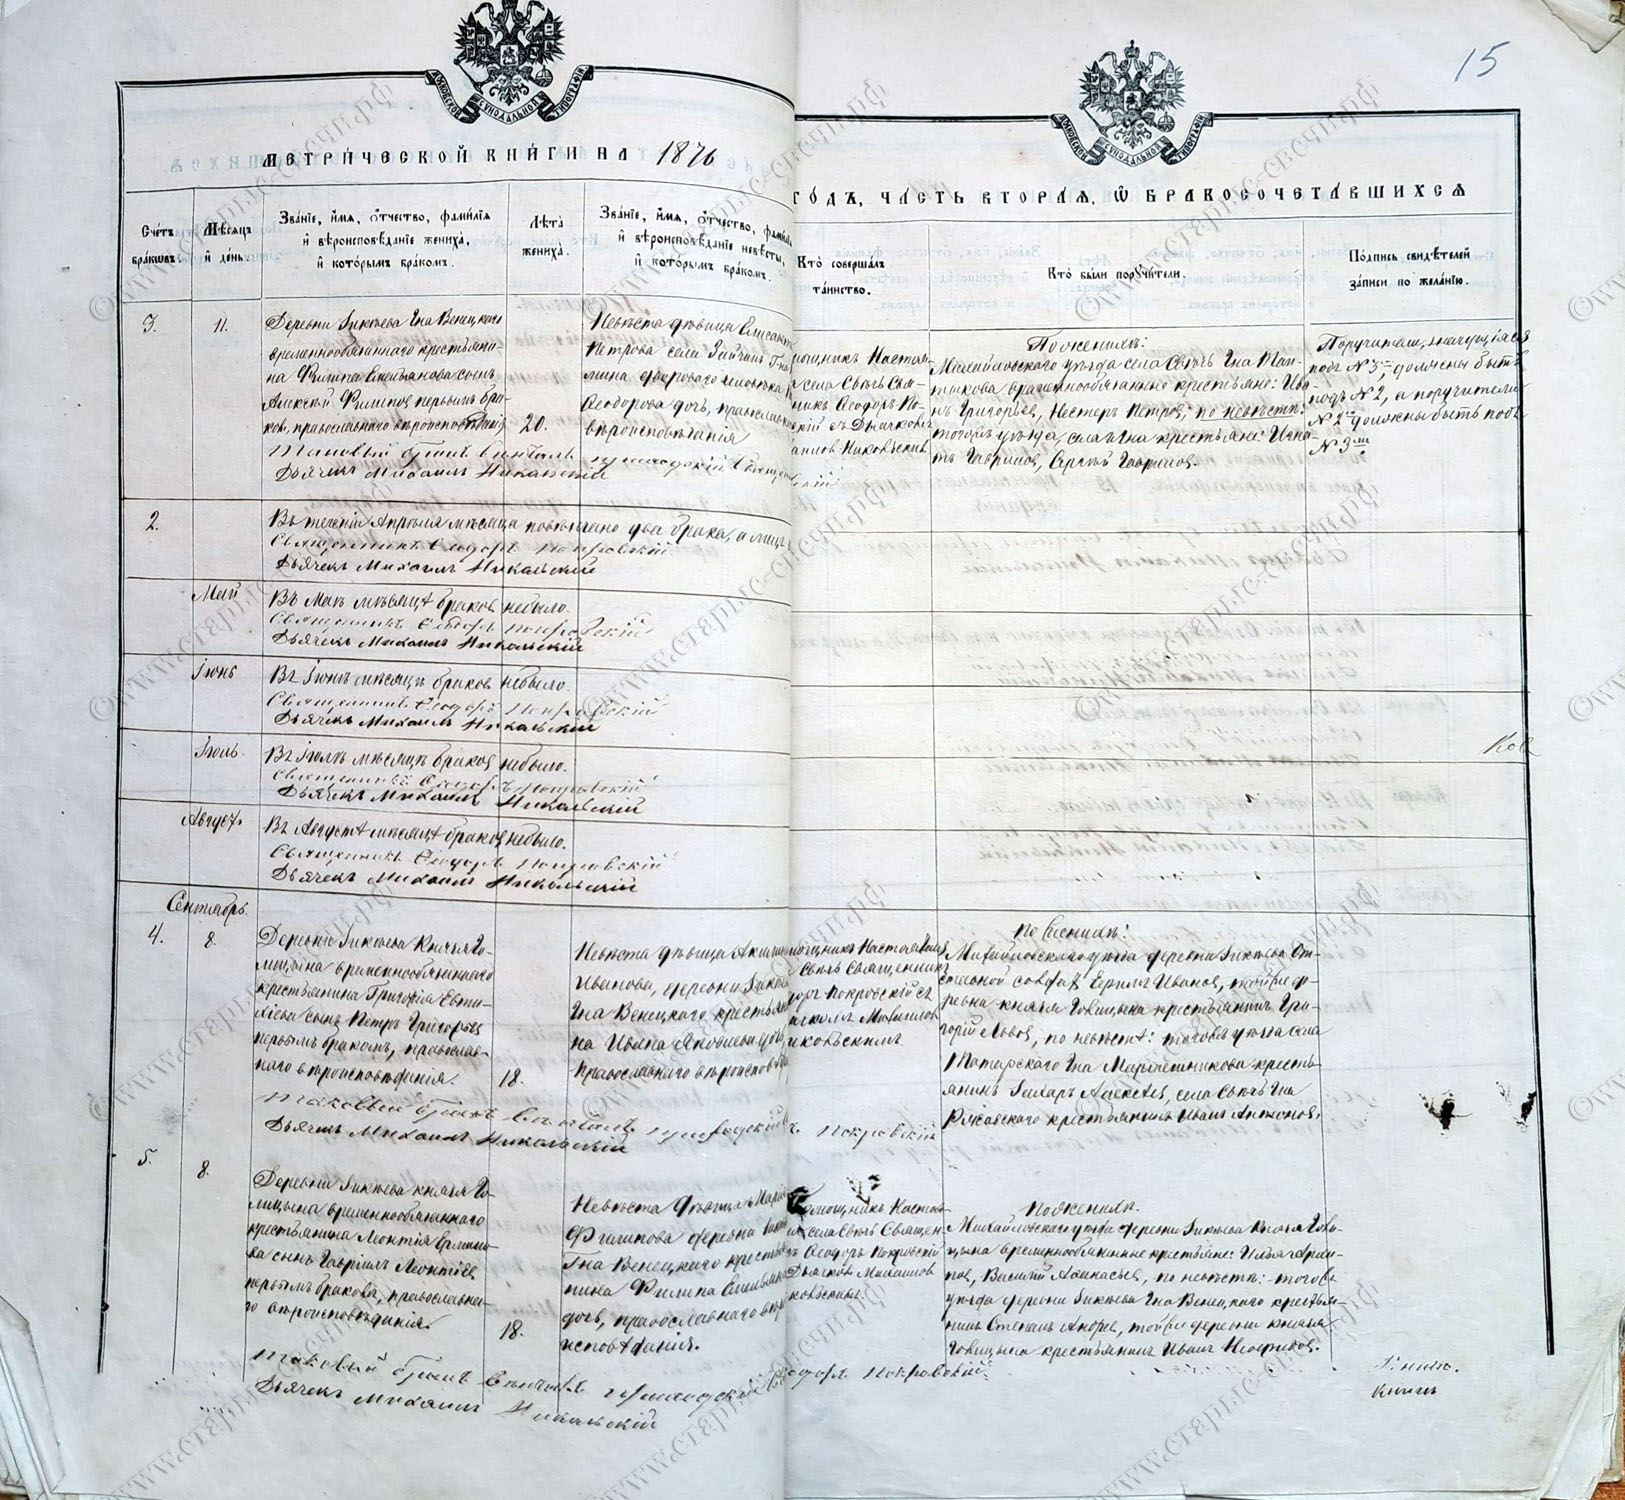 15
МЕТРИЧЕСКОЙ КНИГИ НА 1876
ГОДЪ, ЧАСТЬ ВТОРАЯ, Ѡ БРАКОСОЧЕТАВШИХСЯ
Счетъ браковъ.
Мѣсяцъ и день.
Званіе, имя, отчество, фамилія
и вѣроисповѣданіе жениха,
и которымъ бракомъ.
Лѣта
жениха.
Званіе, имя, отчество, фамил
и вѣроисповѣданіе невѣсты,
и которымъ бракомъ.
Кто совершалъ
таинство.
Кто были поручители.
Подпись свидѣтелей
записи по желанію.
3.
11.
Деревни Гикѣева Гна Венецкаго
временнообязаннаго крестьяни-
на Филипа Емельянова сынъ
Алексѣй Филиповъ первымъ бра-
комъ, православнаго вѣроисповѣданія
20.
Невѣста дѣвица Елисавет
Петрова села
дворового человѣка
Ѳеодорова дочь, православнаго
вѣроисповѣданія
мощникъ Настоят
села Свѣчь Свя-
никъ Ѳеодоръ По-
скій съ Дьячкомъ
По женихѣ:
Михайловскаго уѣзда села Свѣчь Гна Пан-
тыкова временнообязанные крестьяне: Ива-
нъ Григорьевъ, Нестеръ Петровъ; по невѣстѣ:
тогожъ уѣзда, села Гна крестьяне: Игна-
тъ Гавриловъ, Сергѣй Гавриловъ.
Поручители, значущіяся
подъ №3мъ, должны быть
подъ №2, а поручители
№2 должны быть подъ
№3мъ
Таковый бракъ вѣнчалъ приходскій Священ
Дьячекъ Михаилъ Никольскій
2.
Въ теченіи Апрѣля мѣсяца повѣнчано два брака, а лицъ
Священникъ Ѳеодоръ Покровскій
Дьячекъ Михаилъ Никольскій
Май
Въ Маѣ мѣсяцѣ браковъ небыло.
Священникъ Ѳеодоръ Покровскій
Дьячекъ Михаилъ Никольскій
Іюнь
Въ Іюнѣ мѣсяцѣ браковъ небыло.
Священникъ Ѳеодоръ Покровскій
Дьячекъ Михаилъ Никольскій
Іюль
Въ Іюлѣ мѣсяцѣ браковъ небыло.
Священникъ Ѳеодоръ Покровскій
Дьячекъ Михаилъ Никольскій
Августъ
Въ Августѣ мѣсяцѣ браковъ небыло.
Священникъ Ѳеодоръ Покровскій
Дьячекъ Михаилъ Никольскій
Сентябрь
4.
8.
Деревни Гикѣева Князя Го-
лицына временнообязаннаго
крестьянина Григорія Евти-
хіева сынъ Петръ Григорьевъ
первымъ бракомъ, православ-
наго вѣроисповѣданія.
18.
Невѣста дѣвица Акили
Иванова, деревни Гикѣ
Гна Венецкаго крестьян
на Ивана Яковлева дочь,
православнаго вѣроисповѣда
мощникъ Настоятеля
Свѣчь Священникъ
доръ Покровскій съ
ячкомъ Михаиломъ
икольскимъ
По женихѣ:
Михайловскаго уѣзда деревни Гикѣева От-
ставной солдатъ Ермилъ Ивановъ, той же де-
ревни князя Голицына крестьянинъ Гри-
горій Львовъ, по невѣстѣ: тогожъ уѣзда села
Татарскаго Гна крестья-
янинъ Захаръ Алексѣевъ, села Свѣчь Гна
Ржавскаго крестьянинъ Иванъ Антоновъ.
Таковый бракъ вѣнчалъ приходскій
ъ Покровскій
Дьячекъ Михаилъ Никольскій
5.
8.
Деревни Гикѣева князя Го-
лицына временнообязаннаго
крестьянина Леонтія Ермило-
ва сынъ Гавріилъ Леонтіевъ
первымъ бракомъ, православна-
го вѣроисповѣданія.
18.
Невѣста дѣвица Марія
Филипова деревни Гикѣ
Гна Венецкаго крестья
нина Филипа Емельяно
дочь, православнаго вѣро
исповѣданія.
Помощникъ Настоя
ля села Свѣчь Священ
ъ Ѳеодоръ Покровскій
Дьячкомъ Михаиломъ
икольскимъ
По женихѣ.
Михайловскаго уѣзда деревни Гикѣева Князя Голи-
цына временнообязанные крестьяне: Илья Архи-
повъ, Василій Аѳанасьевъ, по невѣстѣ: тогожъ
уѣзда деревни Гикѣева Гна Венецкаго крестья-
нинъ Степанъ Андреевъ, той же деревни князя
Голицына крестьянинъ Иванъ
Таковый бракъ вѣнчалъ приходскій
еодоръ Покровскій
Дьячекъ Михаилъ Никольскій